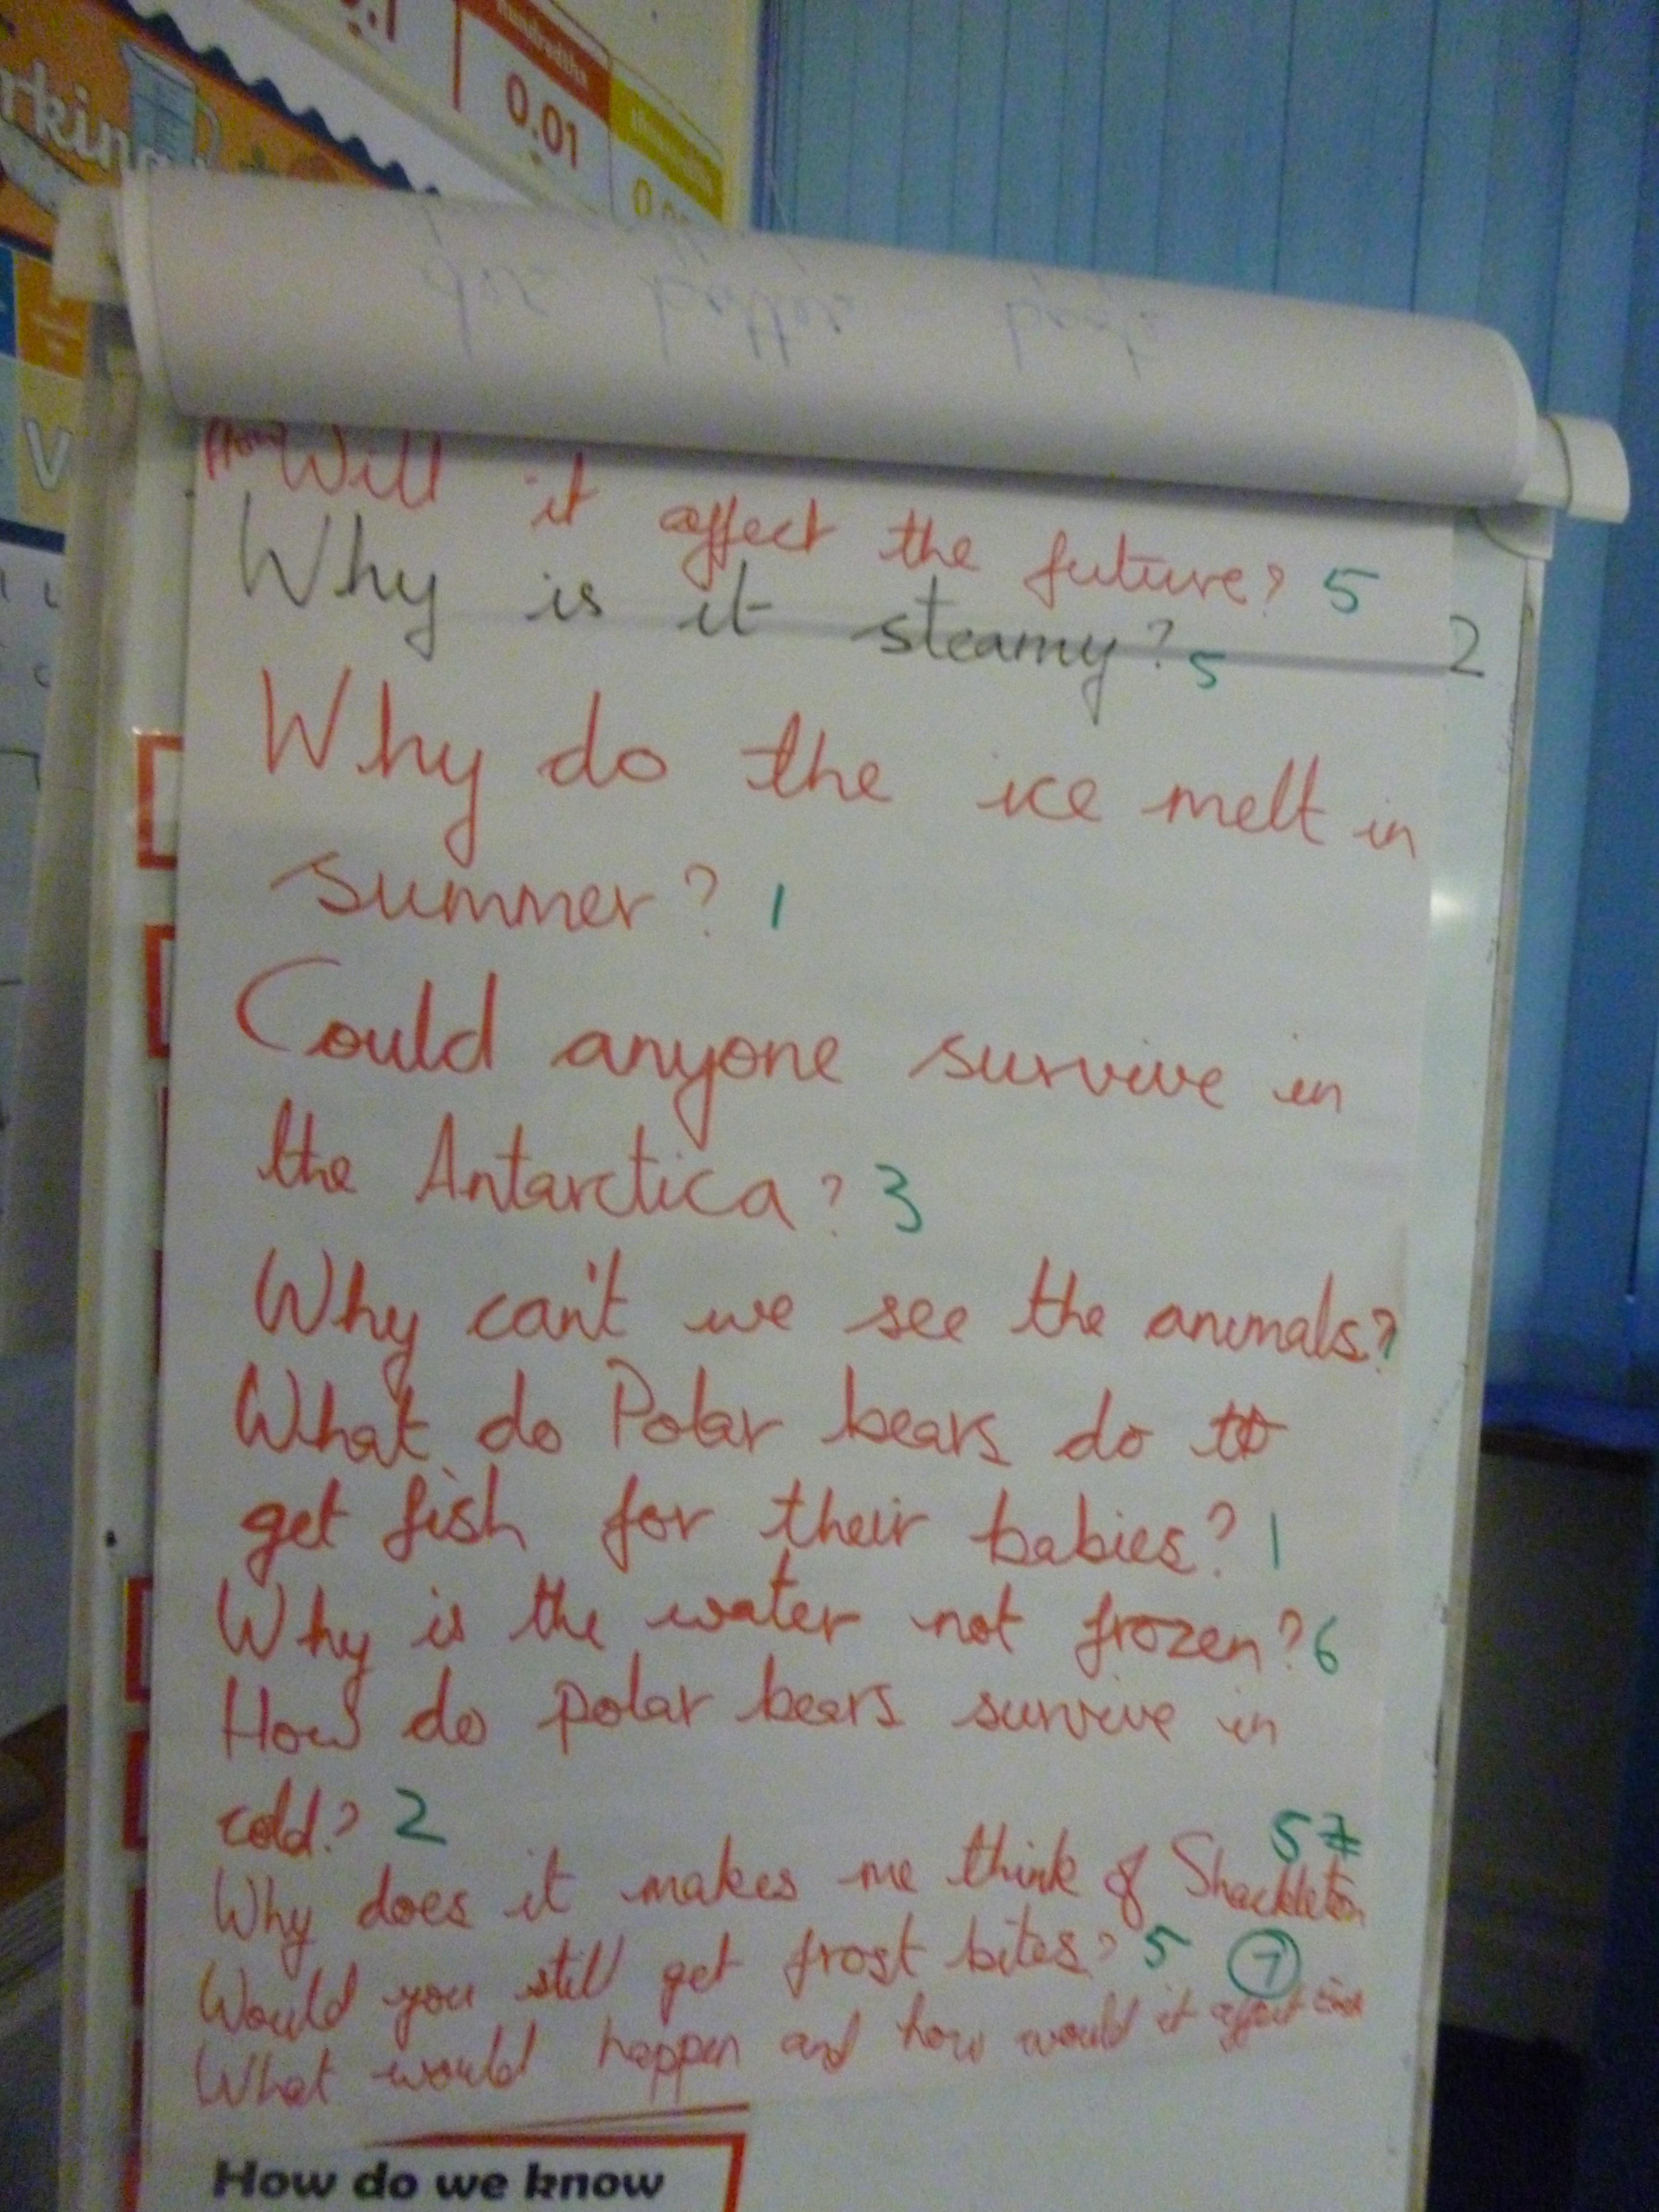 rking
0.1
Hundredths
0.01
How Will it affect the future? 5
Why is it steamy? 5 2
Why do the ice melt in
summer? 1
Could anyone survive in
the Antarctica? 3
Why can't we see the animals?
What do Polar bears do to
get fish for their babies? 1
Why is the water not frozen? 6
How do polar bears survive in
cold? 2
Why does it makes me think of Shackleton 5 7
Would you still get frost bites? 5 7
What would happen and how would it affect
How do we know